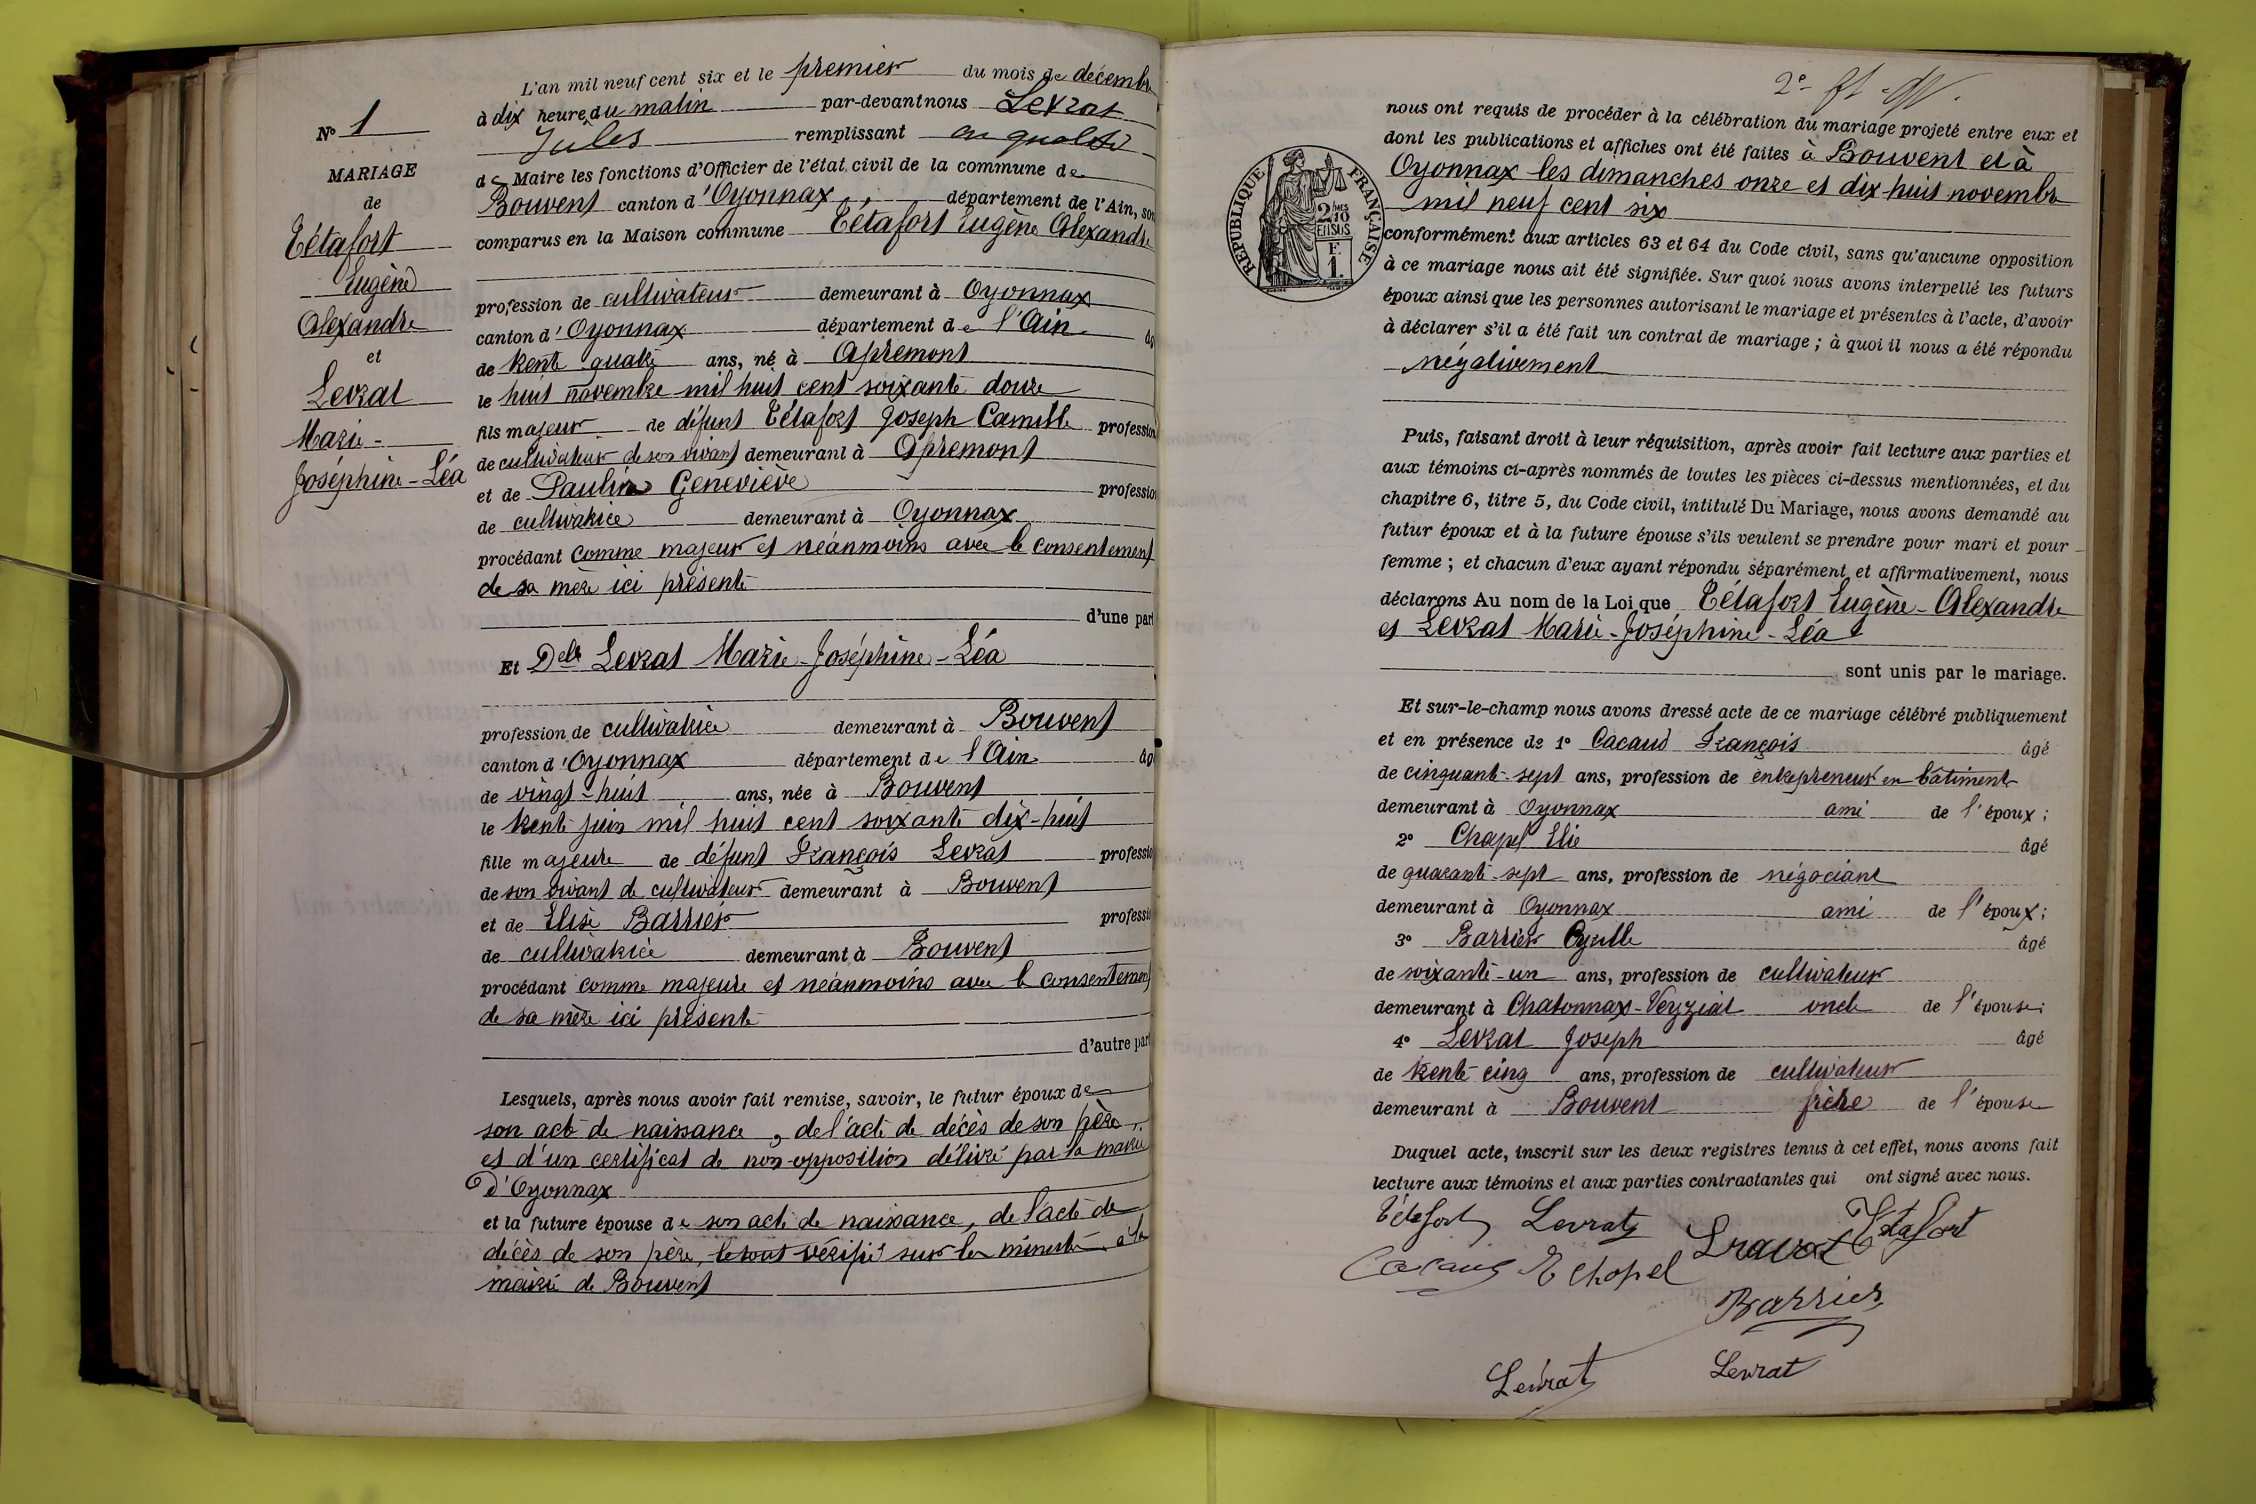 N° 1
MARIAGE
de
Tétafort
Eugène
Alexandre
et
Levrat
Marie-
Joséphine-Léa
L'an mil neuf cent six et le premier du mois de décembre
à dix heure du matin par-devant nous Levrat
Jules remplissant en qualité
de Maire les fonctions d'Officier de l'état civil de la commune de
Bouvent canton d'Oyonnax département de l'Ain, son
comparus en la Maison commune Tétafort Eugène Alexandre
profession de cultivateur demeurant à Oyonnax
canton d'Oyonnax département de l'Ain âg
de trente quatre ans, né à Apremont
le huit novembre mil huit cent soixante douze
fils majeur de défunt Tétafort Joseph Camille profession
de cultivateur de son vivant demeurant à Apremont
et de Pauline Geneviève profession
de cultivatrice demeurant à Oyonnax
procédant comme majeur et néanmoins avec le consentement
de sa mère ici présente
d'une part
Et Delle Levrat Marie-Joséphine-Léa
profession de cultivatrice demeurant à Bouvent
canton d'Oyonnax département de l'Ain âg
de vingt-huit ans, née à Bouvent
le trente juin mil huit cent soixante dix-huit
fille majeure de défunt François Levrat professio
de son vivant de cultivateur demeurant à Bouvent
et de Elise Barrier professio
de cultivatrice demeurant à Bouvent
procédant comme majeure et néanmoins avec le consentement
de sa mère ici présente
d'autre part
Lesquels, après nous avoir fait remise, savoir, le futur époux de
son acte de naissance, de l'acte de décès de son père,
et d'un certificat de non-opposition délivré par la mairie
d'Oyonnax
et la future épouse de son acte de naissance, de l'acte de
décès de son père, le tout vérifié sur les minutes à la
mairie de Bouvent
2e
nous ont requis de procéder à la célébration du mariage projeté entre eux et
dont les publications et affiches ont été faites à Bouvent et à
Oyonnax les dimanches onze et dix huit novembre
mil neuf cent six
RÉPUBLIQUE FRANÇAISE
2/10
EN SUS
F.
1.
conformément aux articles 63 et 64 du Code civil, sans qu'aucune opposition
à ce mariage nous ait été signifiée. Sur quoi nous avons interpellé les futurs
époux ainsi que les personnes autorisant le mariage et présentes à l'acte, d'avoir
à déclarer s'il a été fait un contrat de mariage ; à quoi il nous a été répondu
négativement
Puis, faisant droit à leur réquisition, après avoir fait lecture aux parties et
aux témoins ci-après nommés de toutes les pièces ci-dessus mentionnées, et du
chapitre 6, titre 5, du Code civil, intitulé Du Mariage, nous avons demandé au
futur époux et à la future épouse s'ils veulent se prendre pour mari et pour
femme ; et chacun d'eux ayant répondu séparément et affirmativement, nous
déclarons Au nom de la Loi que Tétafort Eugène-Alexandre
et Levrat Marie-Joséphine-Léa
sont unis par le mariage.
Et sur-le-champ nous avons dressé acte de ce mariage célébré publiquement
et en présence de 1° Cacaud François âgé
de cinquante-sept ans, profession de entrepreneur en bâtiments
demeurant à Oyonnax ami de l'époux ;
2° Chapel Elie âgé
de quarante-sept ans, profession de négociant
demeurant à Oyonnax ami de l'époux ;
3° Barrier Cyrille âgé
de soixante-un ans, profession de cultivateur
demeurant à Chatonnax-Veyziat oncle de l'épouse ;
4° Levrat Joseph âgé
de trente-cinq ans, profession de cultivateur
demeurant à Bouvent frère de l'épouse
Duquel acte, inscrit sur les deux registres tenus à cet effet, nous avons fait
lecture aux témoins et aux parties contractantes qui ont signé avec nous.
Tétafort Levrat Tétafort
Cacaud E Chapel
Barrier
Levrat Levrat